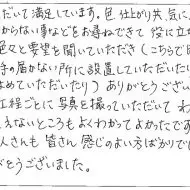 だいて満足しています。色、仕上がり共、気に
からない事などをお尋ねできて役に立
色々と要望も聞いていただき(こちらで
手の届かない所に設置していただいたり
はめていただいたり)ありがとうござい
工程ごとに写真を撮っていただいてわ
えないところもよくわかってよかったです
人さんも皆さん感じのよい方ばかりで
がとうございました。